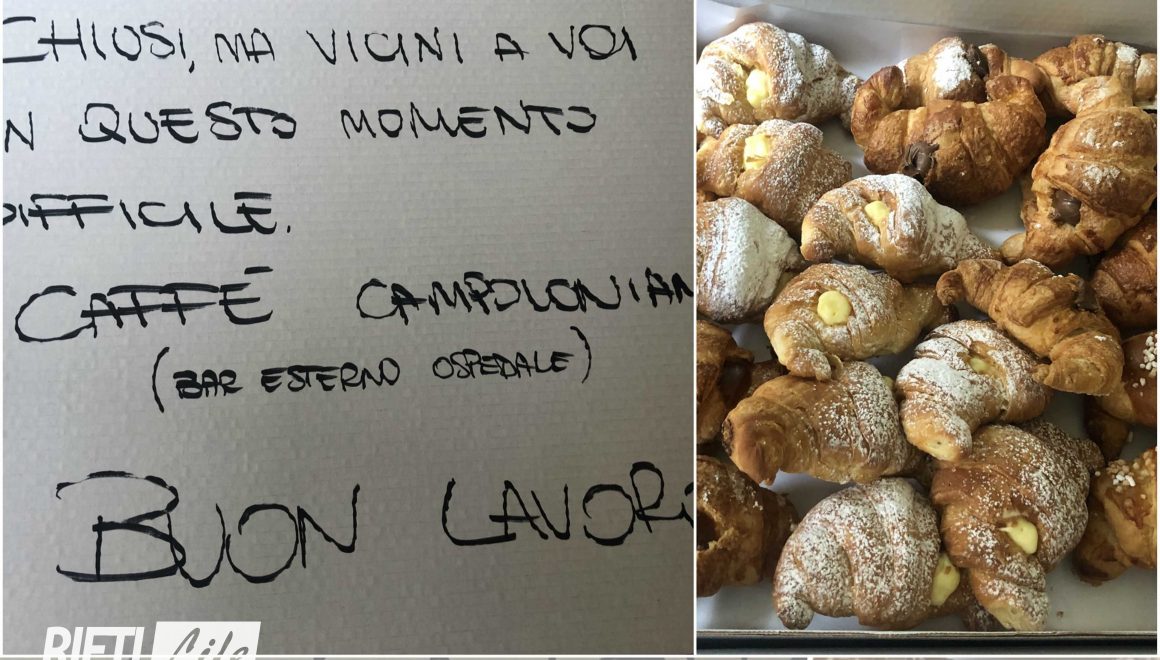 CHIUSI, MA VICINI A VOI
N QUESTO MOMENTO
DIFFICILE.
CAFFÉ CAMPOLONIAN
(BAR ESTERNO OSPEDALE)
BUON LAVORO
RIETI Life